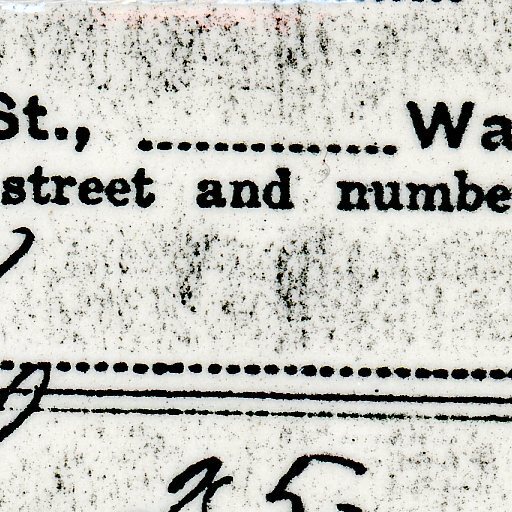 St., .............. Wa
street and numbe
25